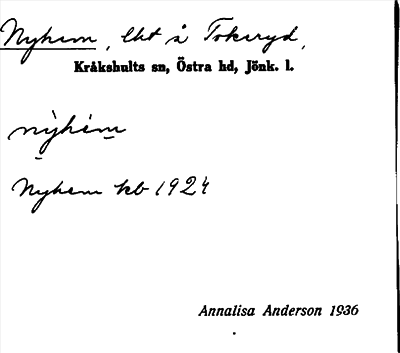 Nyhem, lht å Tokeryd,
Kråkshults sn, Östra hd, Jönk. l.
nỳhèm
Nyhem kb 1924
Annalisa Anderson 1936